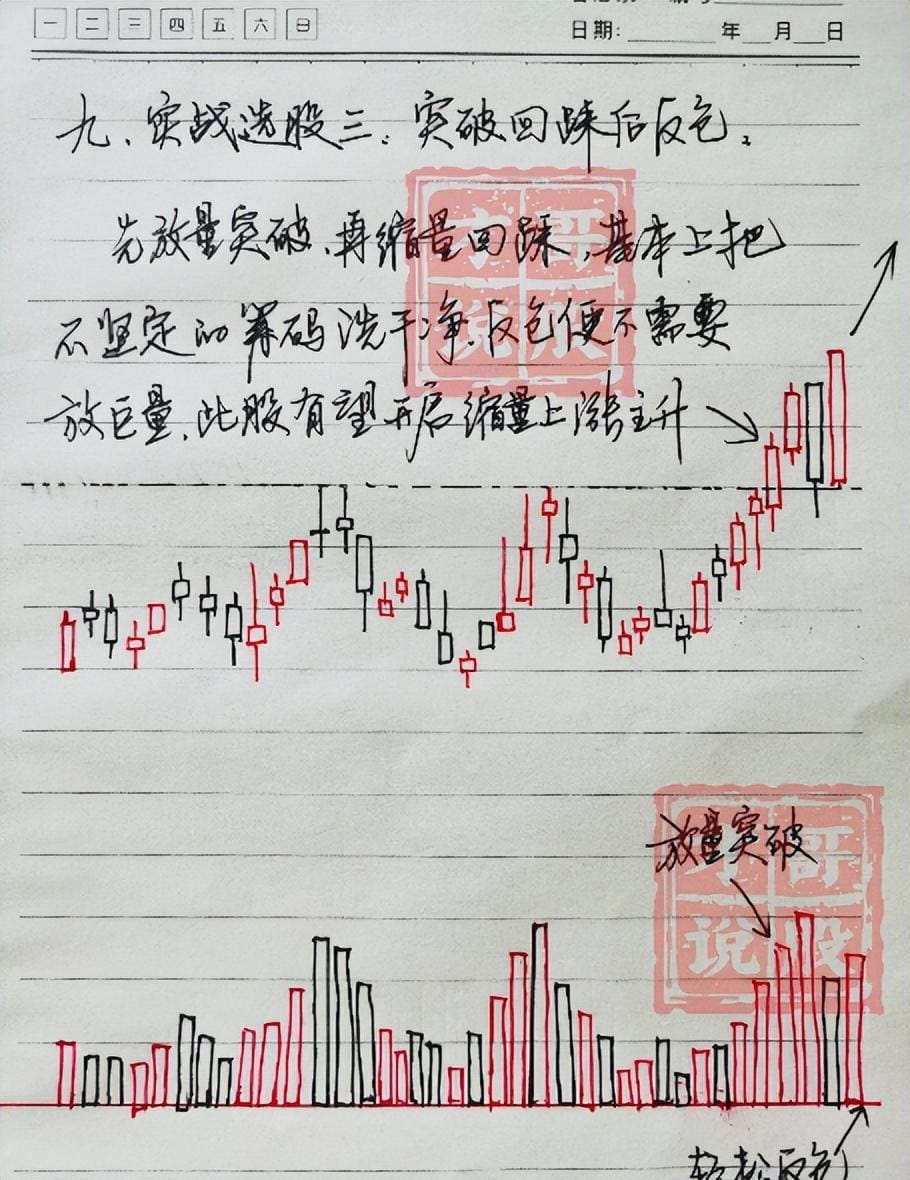 一 二 三 四 五 六 日
日期: 年 月 日
九、实战选股三：突破回踩后反包。
先放量突破、再缩量回踩，基本上把
不坚定的筹码洗干净，反包便不需要
放巨量，此股有望开启缩量上涨主升
放量突破
哥
说股
轻松反包